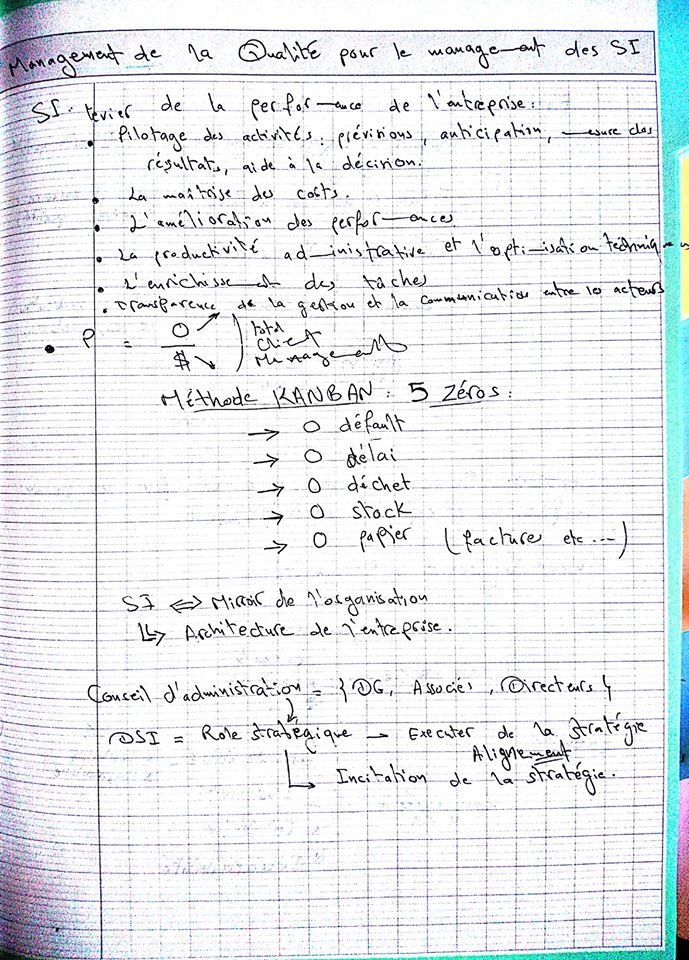 Management de la Qualité pour le management des SI
SI : levier de la performance de l'entreprise :
• Pilotage des activités, prévisions, anticipation, mesure des
résultats, aide à la décision.
• La maîtrise des costs.
• L'amélioration des performances
• La productivité administrative et l'optimisation technique
• L'enrichissement des tâches
• Transparence de la gestion et la communication entre les acteurs
• P = O↗ / $↘ ) total
Client
Management
Méthode KANBAN : 5 Zéros :
→ 0 défault
→ 0 délai
→ 0 déchet
→ 0 stock
→ 0 papier (facture etc...)
SI ⇔ Mirroir de l'organisation
↳ Architecture de l'entreprise.
Conseil d'administration = { DG, Associés, Directeurs }
DSI = Role stratégique → Executer de la stratégie
Alignement
↳ Incitation de la stratégie.